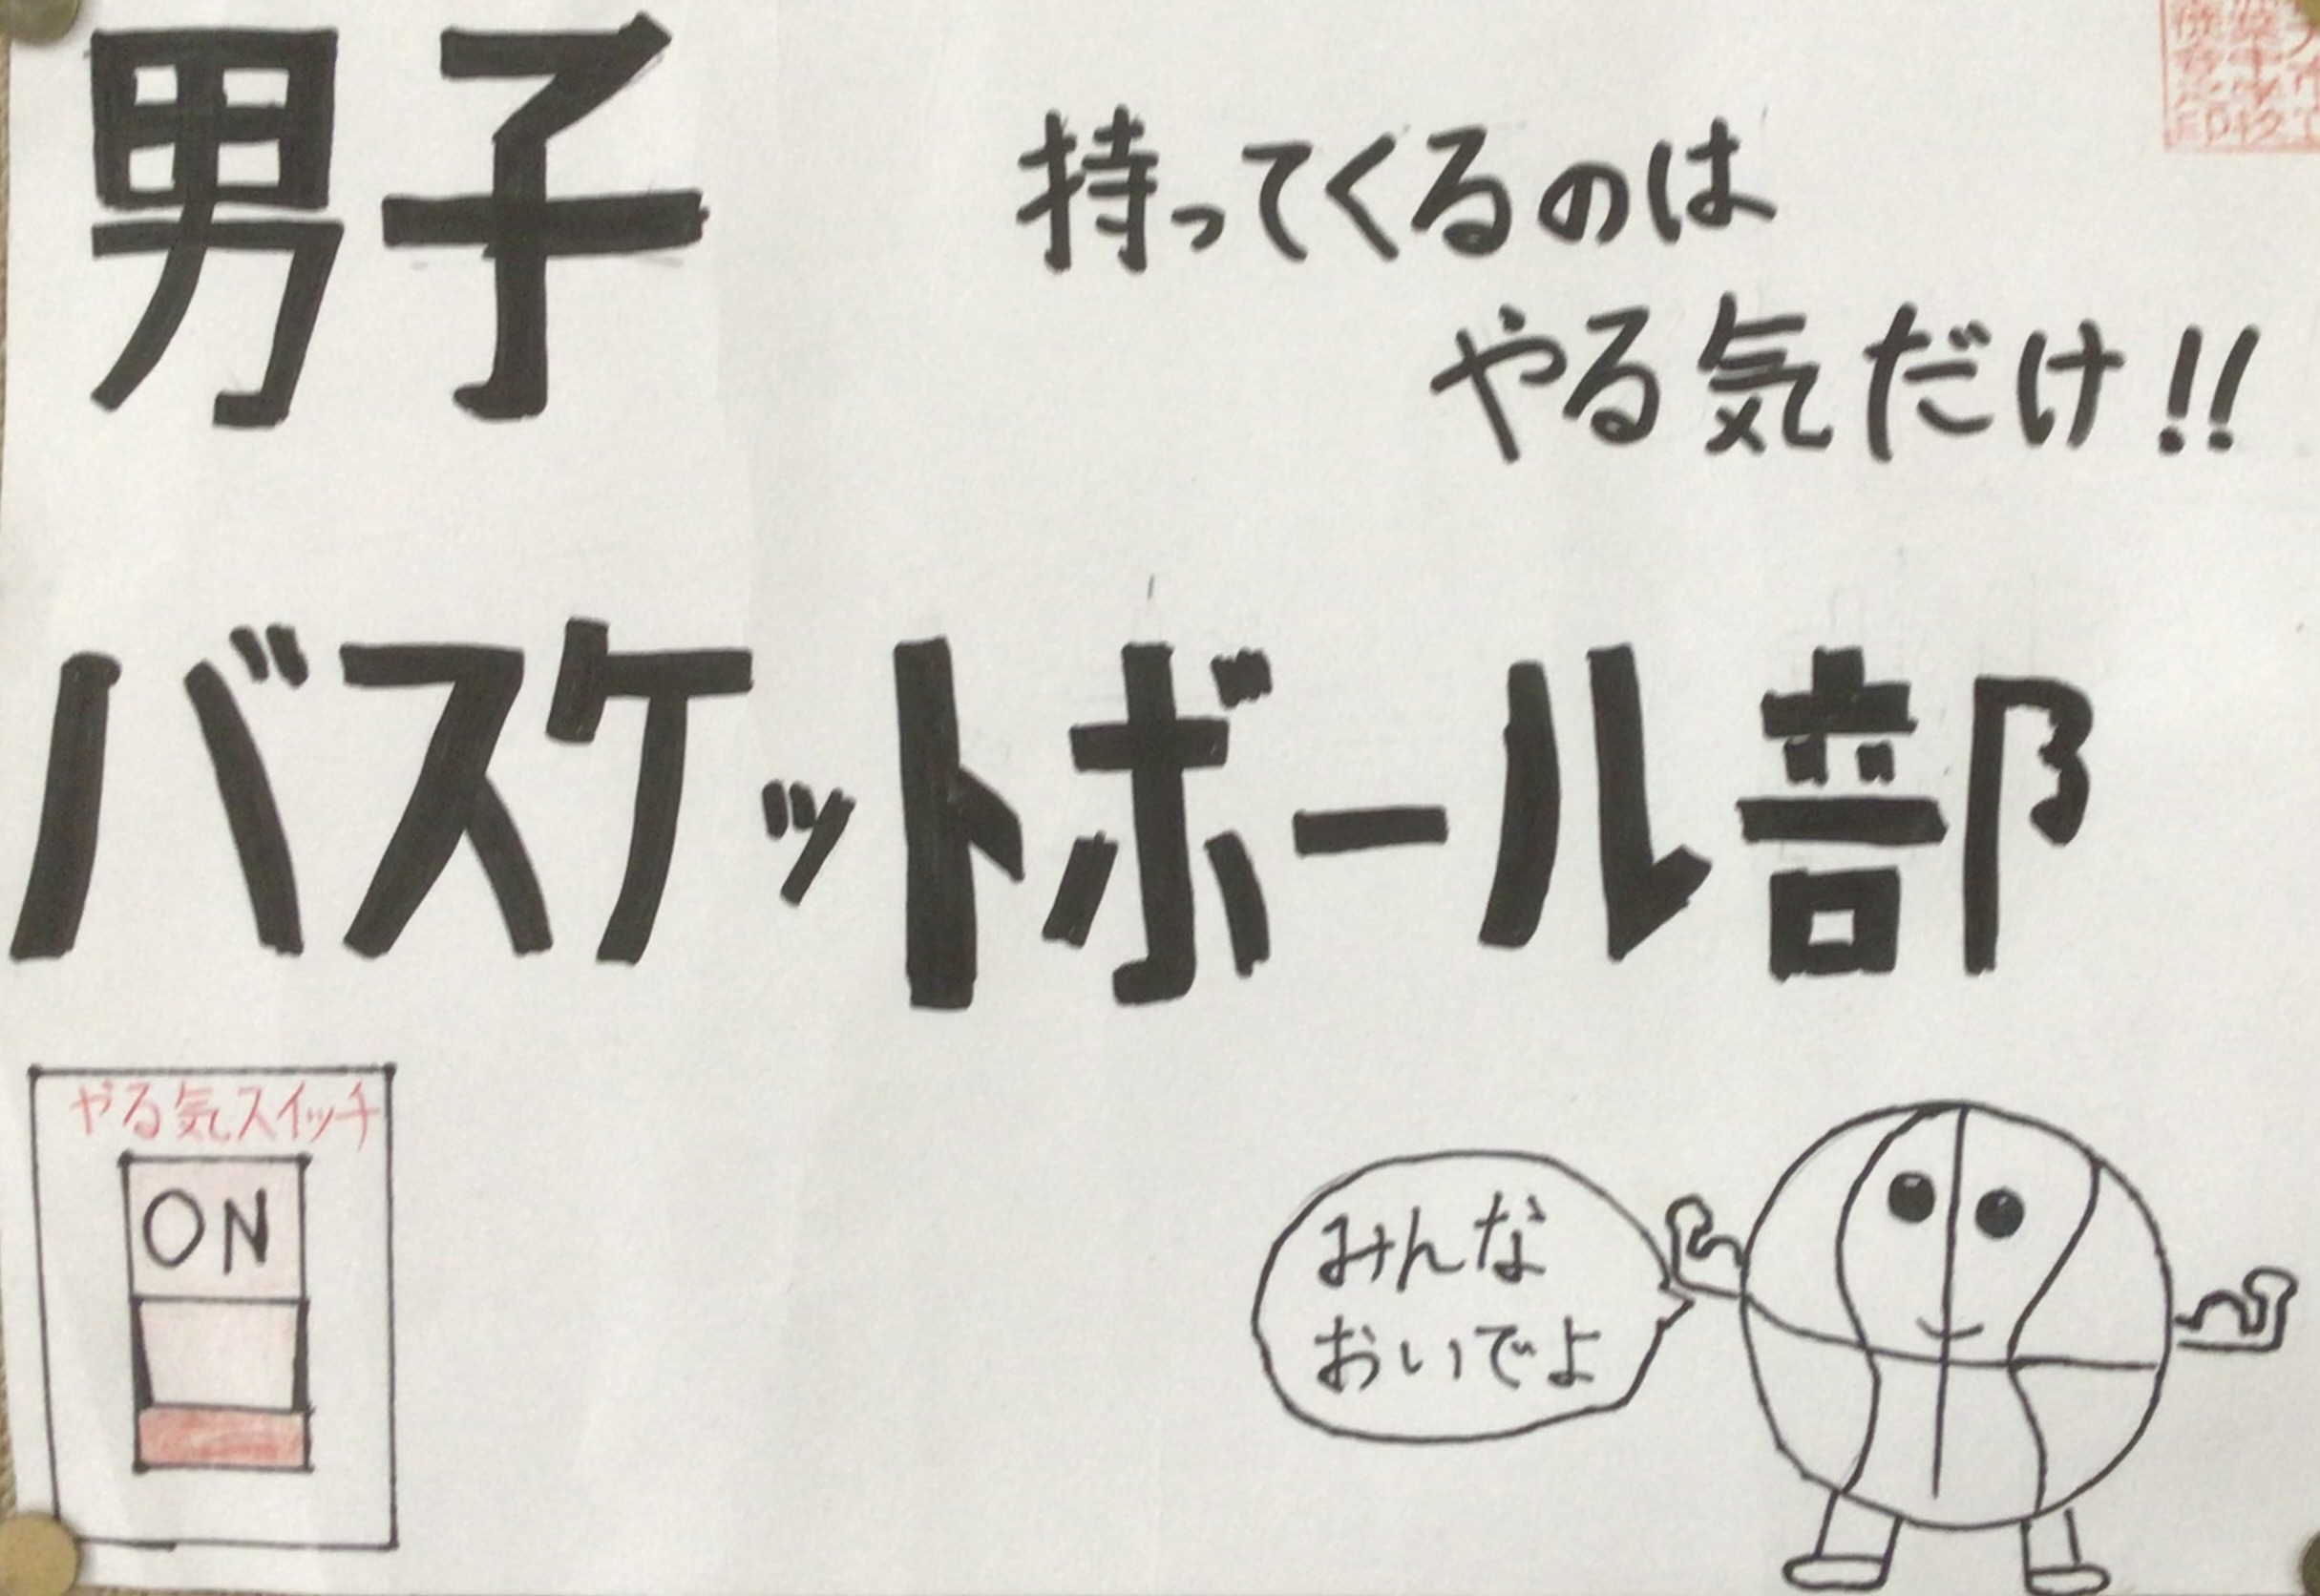 男子
持ってくるのは
やる気だけ!!
バスケットボール部
やる気スイッチ
ON
みんな
おいでよ